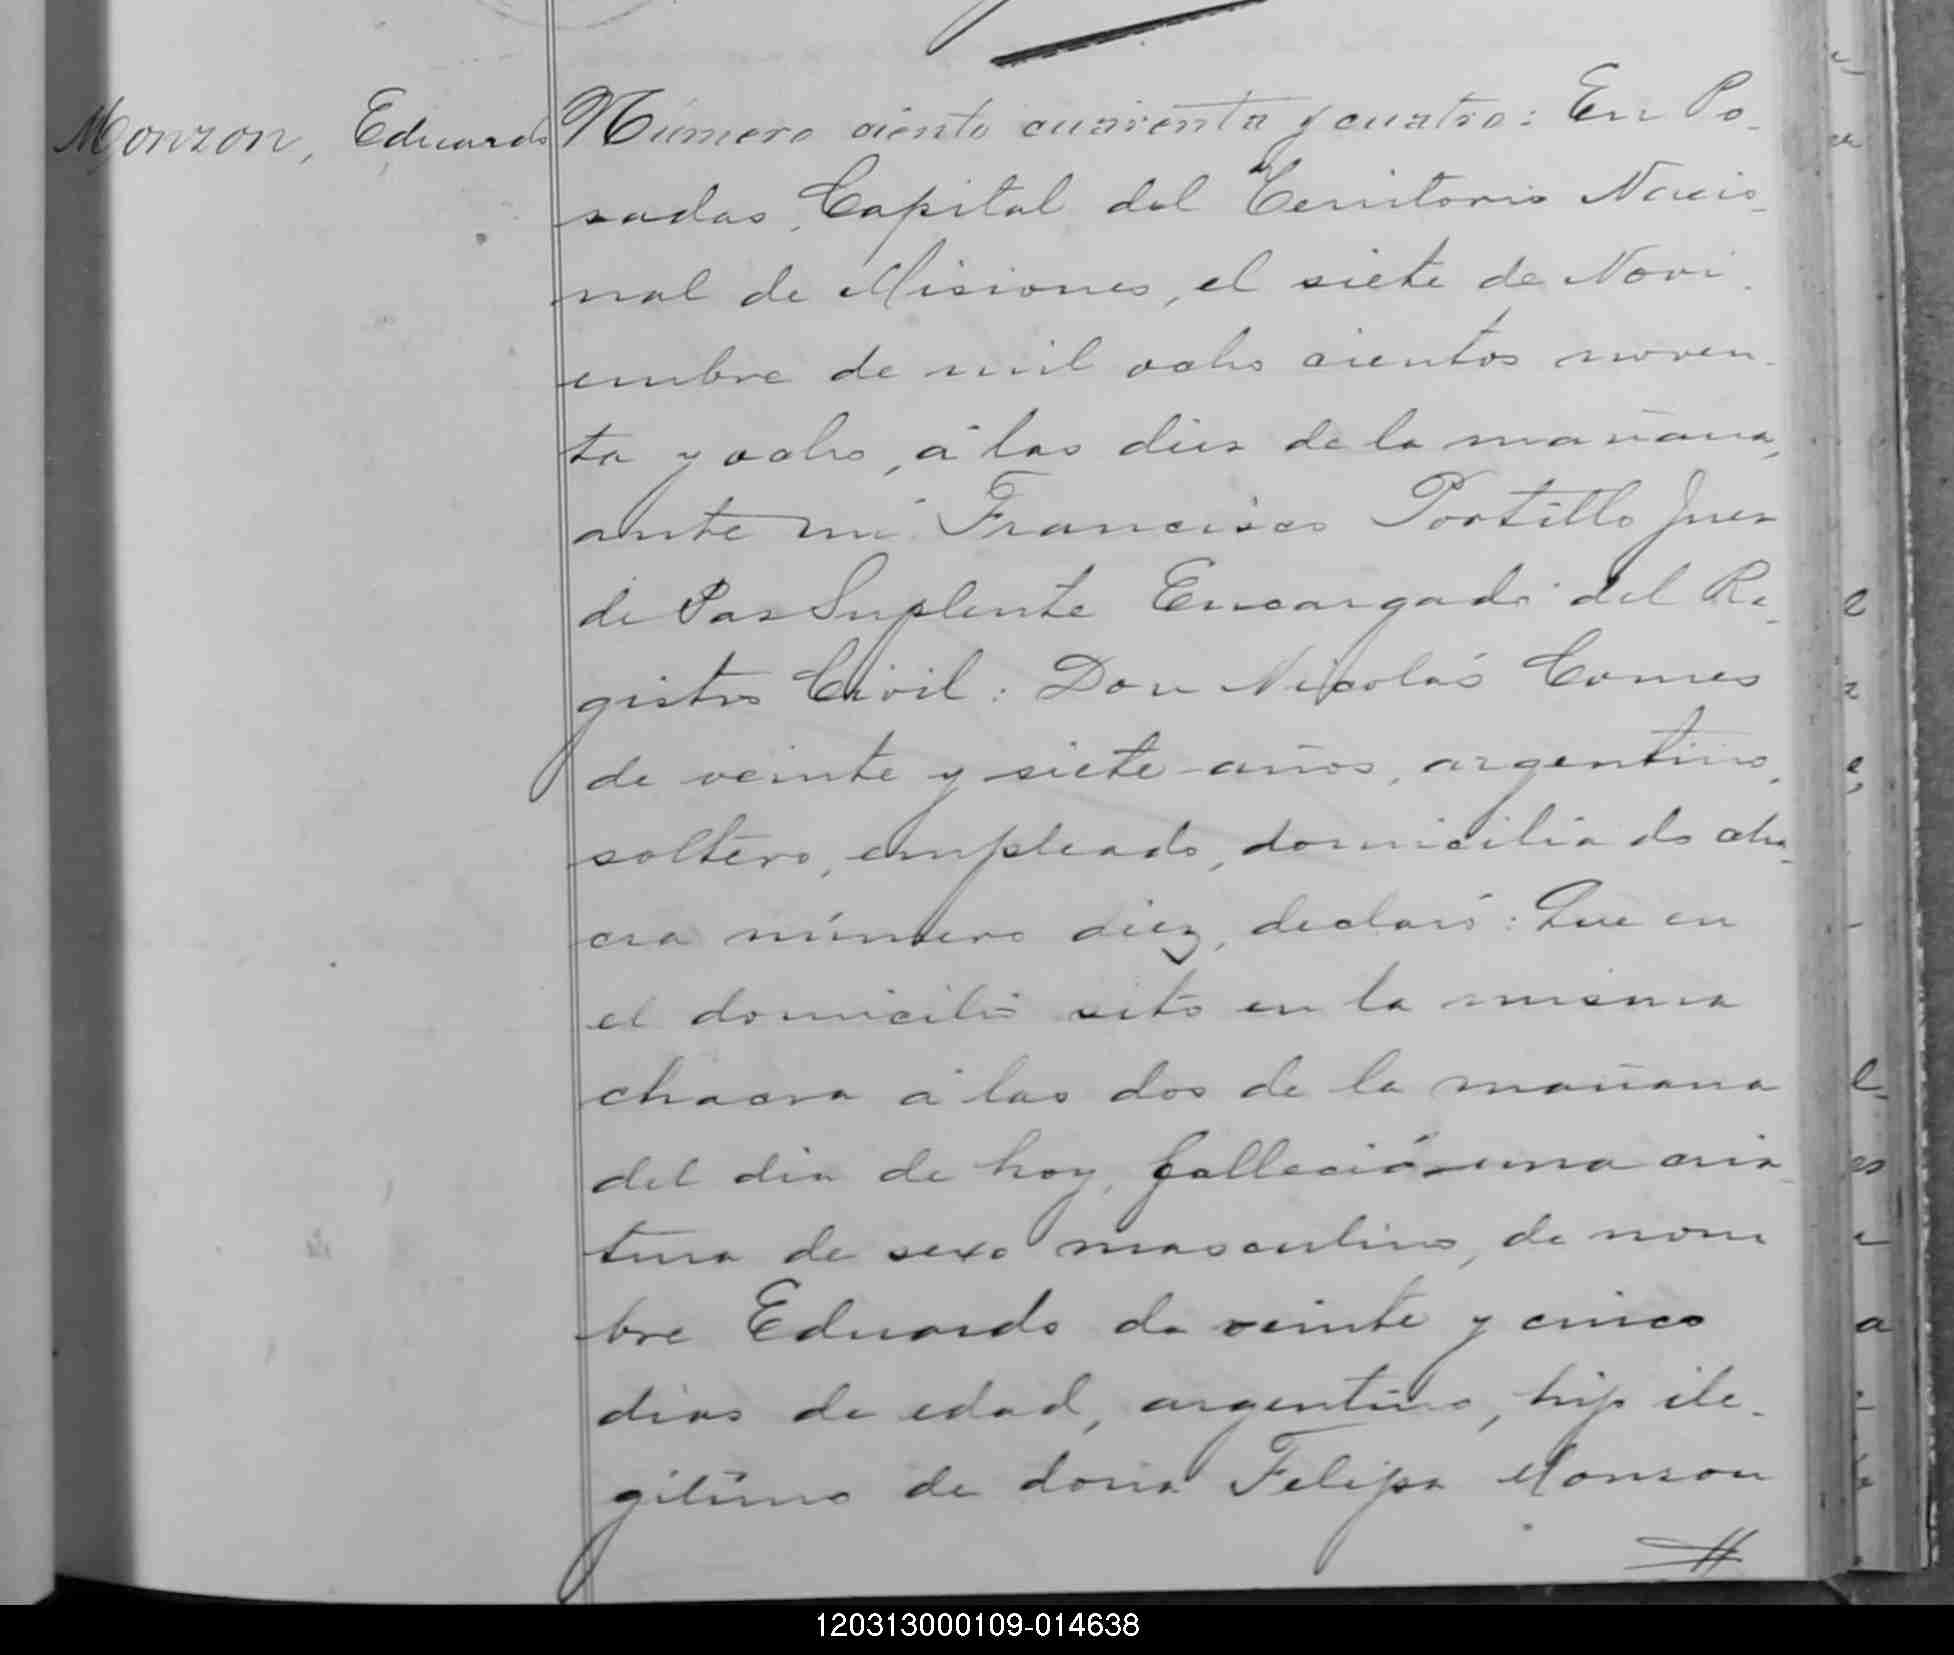 Monzon, Eduardo
Número ciento cuarenta y cuatro: En Po-
sadas, Capital del Territorio Nacio-
nal de Misiones, el siete de Novi-
embre de mil ocho cientos noven-
ta y ocho, á las diez de la mañana,
ante mí Francisco Portillo Juez
de Paz Suplente Encargado del Re-
gistro Civil: Don Nicolás Comes
de veinte y siete años, argentino,
soltero, empleado, domiciliado cha-
cra número diez, declaró: Que en
el domicilio sito en la misma
chacra á las dos de la mañana
del dia de hoy, falleció una cria-
tura de sexo masculino, de nom
bre Eduardo de veinte y cinco
dias de edad, argentino, hijo ile-
gitimo de doña Felipa Monzon
120313000109-014638